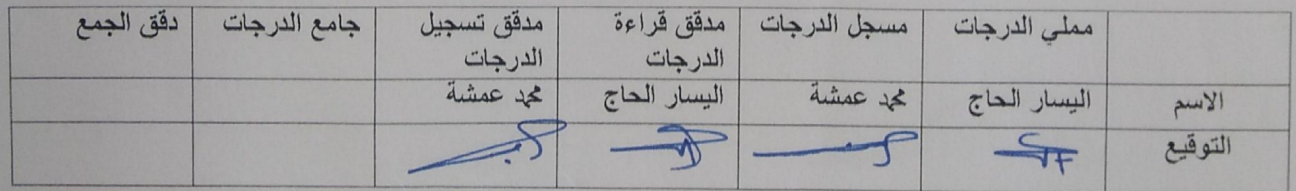 مملي الدرجات مسجل الدرجات مدقق قراءة الدرجات مدقق تسجيل الدرجات جامع الدرجات دقق الجمع
الاسم اليسار الحاج محمد عمشة اليسار الحاج محمد عمشة
التوقيع